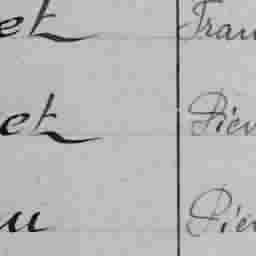 et Fran
et Pier
u Pier